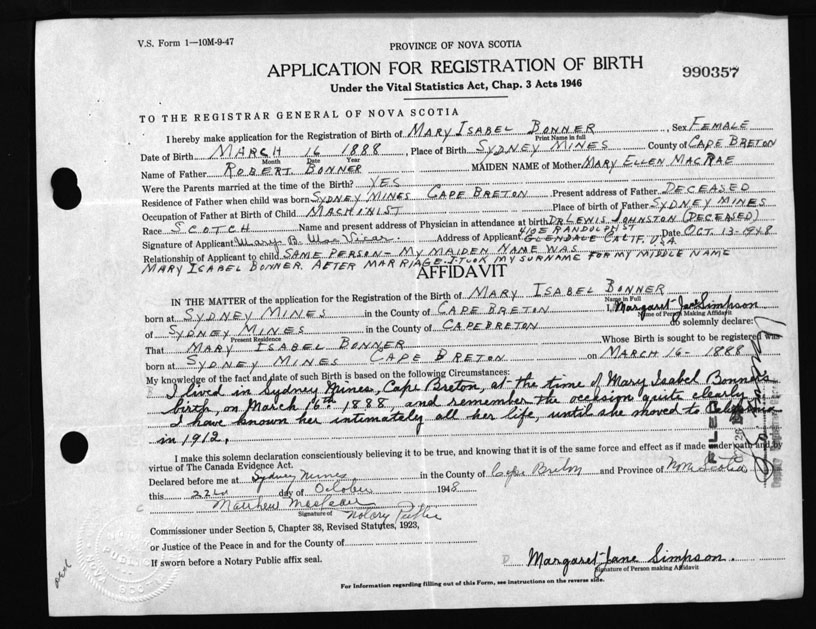 V.S. Form 1—10M-9-47
PROVINCE OF NOVA SCOTIA
APPLICATION FOR REGISTRATION OF BIRTH
990357
Under the Vital Statistics Act, Chap. 3 Acts 1946
TO THE REGISTRAR GENERAL OF NOVA SCOTIA
I hereby make application for the Registration of Birth of MARY ISABEL BONNER, Sex FEMALE
Print Name in full
Date of Birth MARCH 16 1888, Place of Birth SYDNEY MINES County of CAPE BRETON
Month Date Year
Name of Father ROBERT BONNER MAIDEN NAME of Mother MARY ELLEN MACRAE
Were the Parents married at the time of the Birth? YES
Residence of Father when child was born SYDNEY MINES CAPE BRETON Present address of Father DECEASED
Occupation of Father at Birth of Child MACHINIST Place of birth of Father SYDNEY MINES
Race SCOTCH Name and present address of Physician in attendance at birth DR LEWIS JOHNSTON (DECEASED)
Signature of Applicant Mary B. MacVicar Address of Applicant 410 E RANDOLPH ST GLENDALE CALIF. USA Date OCT. 13-1948
Relationship of Applicant to child SAME PERSON - MY MAIDEN NAME WAS
MARY ISABEL BONNER. AFTER MARRIAGE I TOOK MY SURNAME FOR MY MIDDLE NAME
AFFIDAVIT
IN THE MATTER of the application for the Registration of the Birth of MARY ISABEL BONNER
Name in Full
born at SYDNEY MINES in the County of CAPE BRETON I, Margaret Jane Simpson
Name of Person Making Affidavit
of SYDNEY MINES in the County of CAPE BRETON do solemnly declare:
Present Residence
That MARY ISABEL BONNER Whose Birth is sought to be registered was
born at SYDNEY MINES CAPE BRETON on MARCH 16 - 1888
My knowledge of the fact and date of such Birth is based on the following Circumstances:
I lived in Sydney Mines, Cape Breton, at the time of Mary Isabel Bonner's
birth, on March 16th 1888, and remember the occasion quite clearly
I have known her intimately all her life, until she moved to California
in 1912.
FILED
I make this solemn declaration conscientiously believing it to be true, and knowing that it is of the same force and effect as if made under oath and by
virtue of The Canada Evidence Act.
Declared before me at Sydney Mines in the County of Cape Breton and Province of Nova Scotia
this 22nd day of October 1948
Matthew MacLean
Signature of Notary Public
Commissioner under Section 5, Chapter 38, Revised Statutes, 1923,
or Justice of the Peace in and for the County of
If sworn before a Notary Public affix seal.
Margaret Jane Simpson.
Signature of Person making Affidavit
For Information regarding filling out of this Form, see instructions on the reverse side.